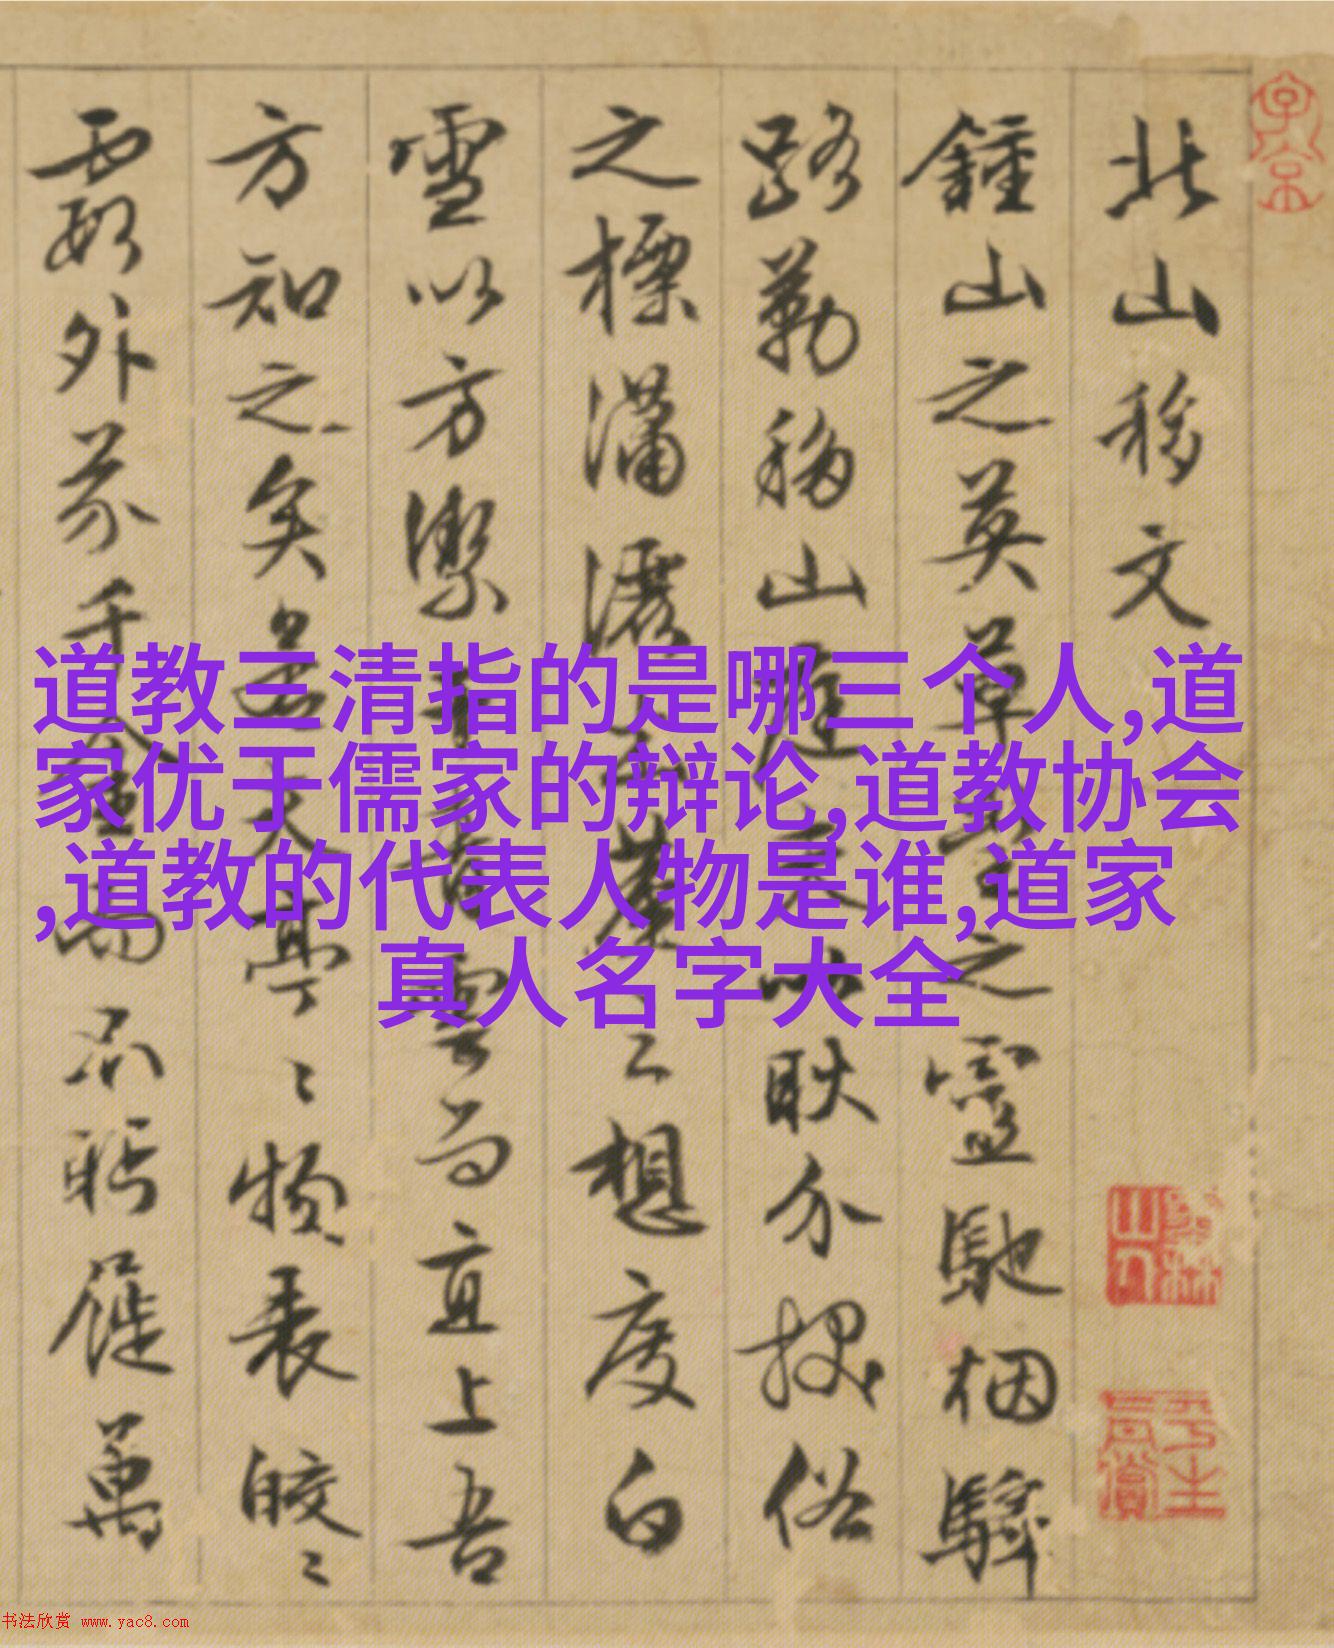 北山移文
鍾山之英草堂之靈馳烟驛
路勒移山庭夫以耿介拔俗
之標瀟灑出塵之想度白
雪以方潔干青雲而直上吾
方知之矣若夫亭〻物表皎〻
霞外芥千金而不眄屣萬
道教三清指的是哪三个人,道
家优于儒家的辩论,道教协会
,道教的代表人物是谁,道家
真人名字大全
书法欣赏 www.yac8.com